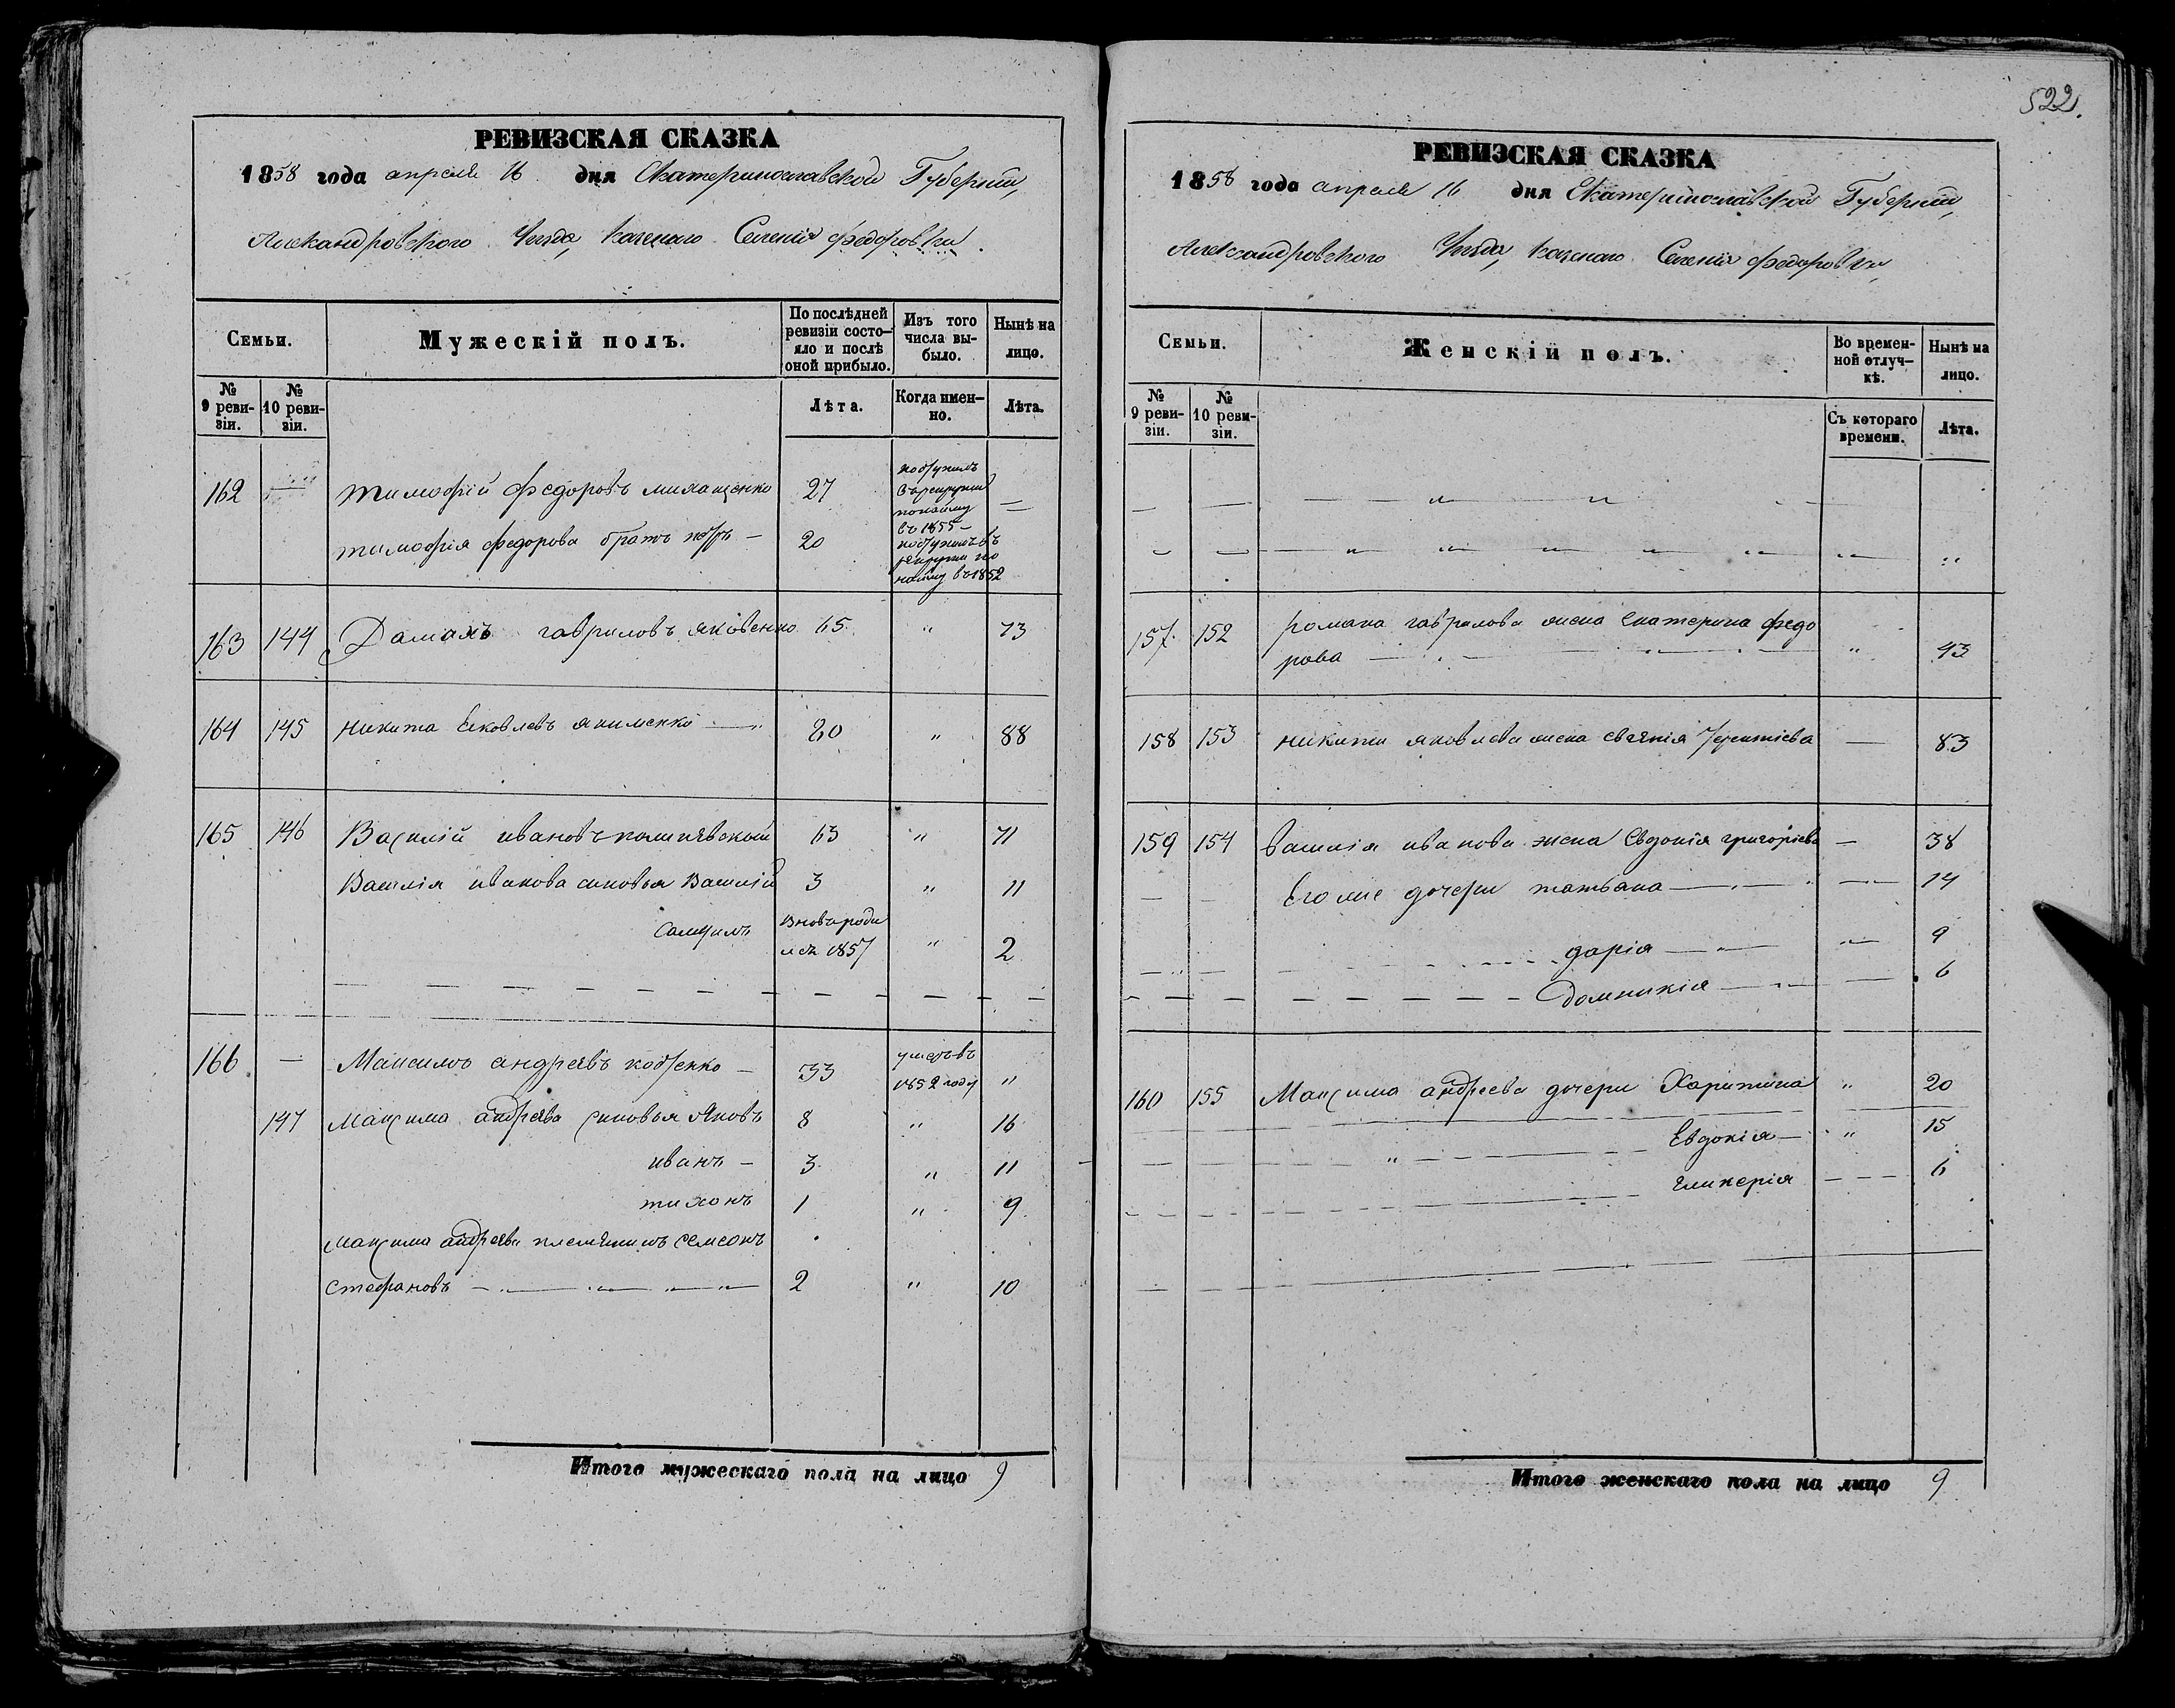 522.
РЕВИЗСКАЯ СКАЗКА
1858 года апреля 16 дня Екатеринославской Губернии,
Александровского Уезда, Казенаго Селенія федоровки.
Семьи.
Мужескій полъ.
По послѣдней ревизіи состояло и послѣ оной прибыло.
Изъ того числа выбыло.
Нынѣ на лицо.
№ 9 ревизіи.
№ 10 ревизіи.
Лѣта.
Когда именно.
Лѣта.
162 — тимофій федоровъ 27 —
въ 1855 —
тимофія федорова братъ — 20
въ 1852
163 144 гавриловъ яковенко 65 " 73
164 145 никита яковлевъ якименко — " 80 " 88
165 146 Василій ивановъ 63 " 71
Василія иванова сыновья Василій 3 " 11
вновь роди
лся 1857 " 2
166 — Максимъ андреевъ — 33 1852 году "
147 Максима андреева сыновья Яковъ 8 " 16
иванъ — 3 " 11
тихонъ 1 " 9
Максима андреева племянникъ семеонъ
стефановъ — 2 " 10
Итого мужескаго пола на лицо 9
РЕВИЗСКАЯ СКАЗКА
1858 года апреля 16 дня Екатеринославской Губернии,
Александровского Уезда, Казенаго Селенія федоровки,
Семьи.
Женскій полъ.
Во временной отлучкѣ.
Нынѣ на лицо.
№ 9 ревизіи.
№ 10 ревизіи.
Съ котораго времени.
Лѣта.
157 152 романа гаврилова жена Екатерина федо
рова — " 43
158 153 никиты яковлева жена — 83
159 154 Василія иванова жена Евдокія григорієва — 38
Его же дочери татьяна — 14
дарія — " — 9
домникія — 6
160 155 Максима андреева дочери Харитина " 20
Евдокія — " 15
гликерія — 6
Итого женскаго пола на лицо 9